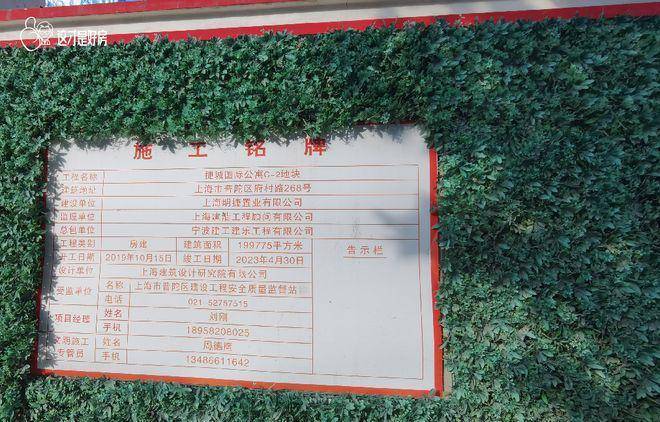 这才是好房
施工铭牌
工程名称 捷城国际公寓C-2地块
建筑地址 上海市普陀区府村路268号
建设单位 上海明捷置业有限公司
监理单位 上海建浩工程顾问有限公司
总包单位 宁波建工建乐工程有限公司
工程类别 房建 建筑面积 199775平方米 告示栏
开工日期 2019年10月15日 竣工日期 2023年4月30日
设计单位 上海建筑设计研究院有限公司
受监单位 名称 上海市普陀区建设工程安全质量监督站
电话 021-52757515
项目经理 姓名 刘刚
手机 18958208025
文明施工专管员 姓名
手机 13486611642